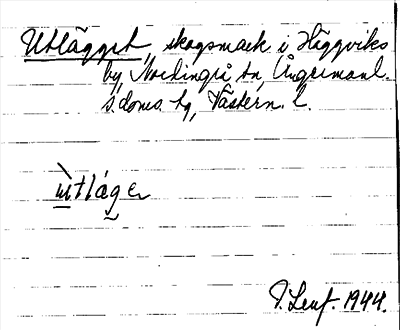 Utlägget, skogsmark i Häggviks
by, Nordingrå sn, Ångermanl.
s. doms. tg, Västern. l.
ùtláger
1944.